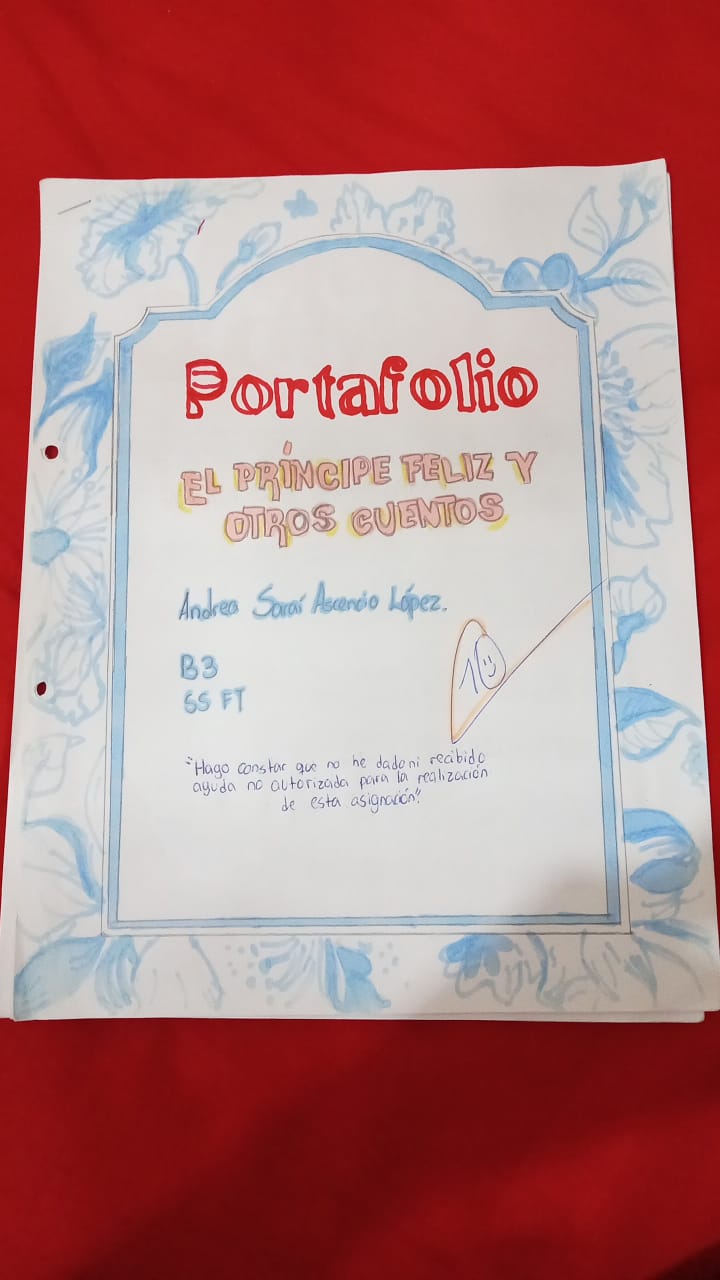 Portafolio
EL PRÍNCIPE FELIZ Y
OTROS CUENTOS
Andrea Saraí Ascencio López.
B3
SS FT
10
"Hago constar que no he dado ni recibido
ayuda no autorizada para la realización
de esta asignación".